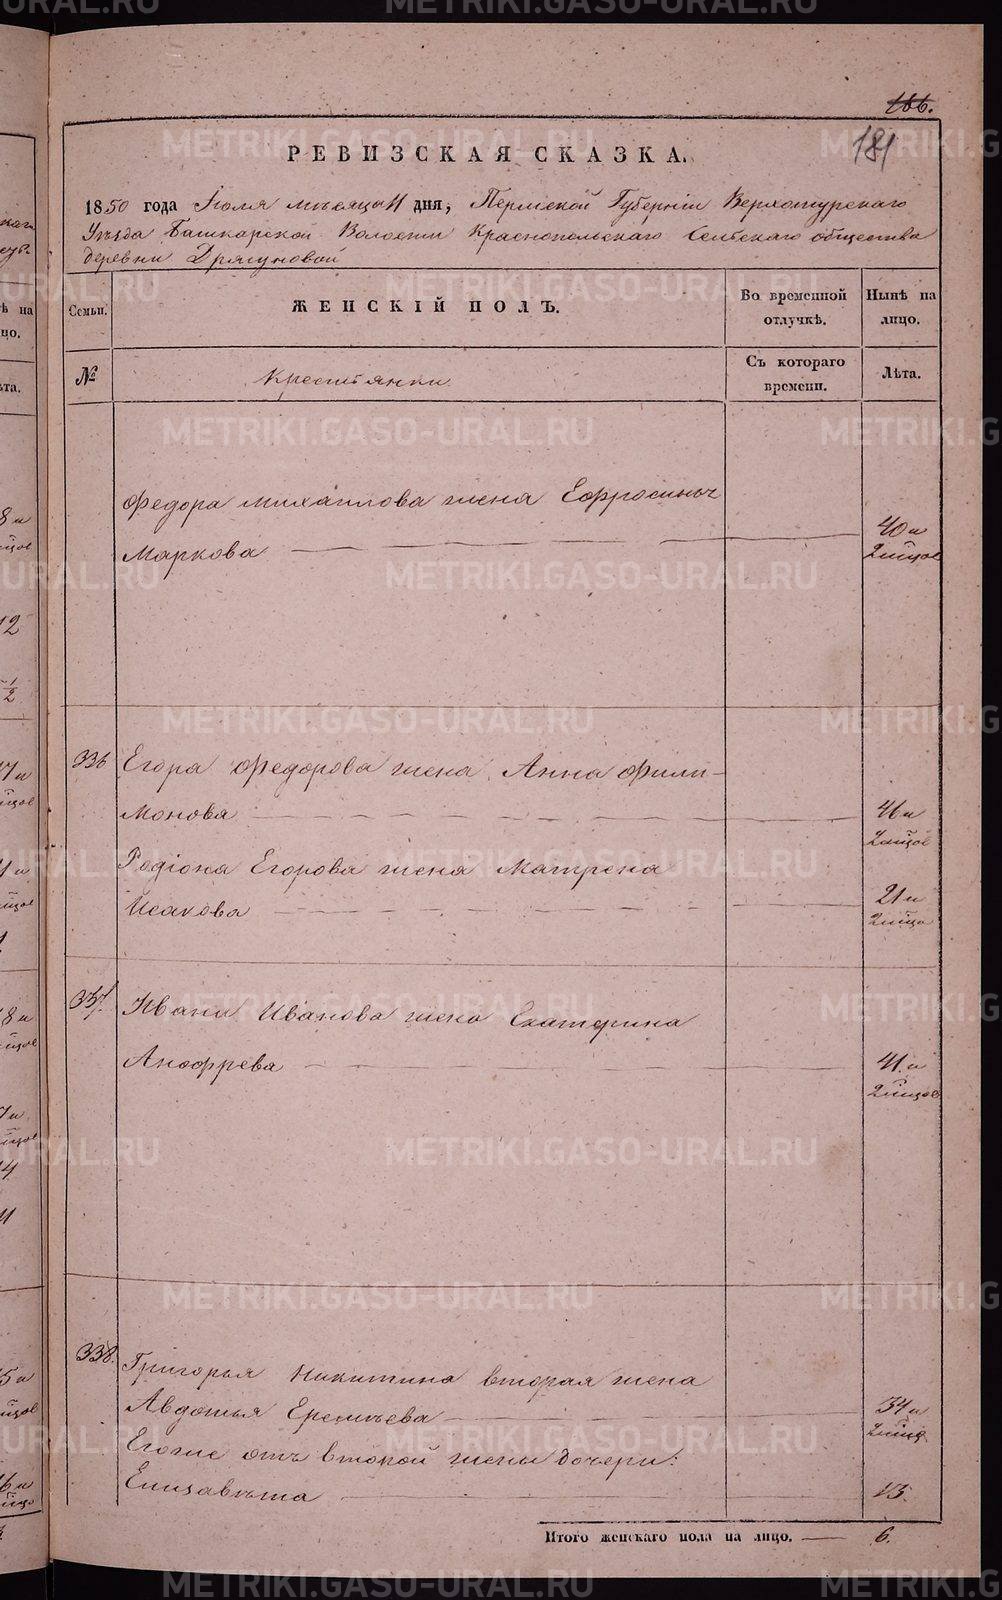 166.
181
РЕВИЗСКАЯ СКАЗКА.
1850 года Іюля мѣсяца 11 дня, Пермской Губерніи Верхотурскаго
Уѣзда Башкарской Волости Краснопольскаго Сельскаго общества
деревни Дрягуновой
Семьи.
ЖЕНСКІЙ ПОЛЪ.
Во временной отлучкѣ.
Нынѣ на лицо.
№
Крестьянки
Съ котораго времени.
Лѣта.
Федора Михайлова жена Ефросинья
Маркова
40 и
2 мѣсяцов
336 Егора Федорова жена Анна Фили-
монова
46 и
2 мѣсяцов
Родіона Егорова жена Матрена
Исакова
21 и
2 мѣсяца
337 Ивана Иванова жена Екатерина
Анофрева
41 и
2 мѣсяцов
338. Григорья Никитина вторая жена
Авдотья Еремѣева
34 и
2 мѣсяца
Егоже отъ второй жены дочери:
Елизавѣта
13.
Итого женскаго пола на лицо. 6.
METRIKI.GASO-URAL.RU